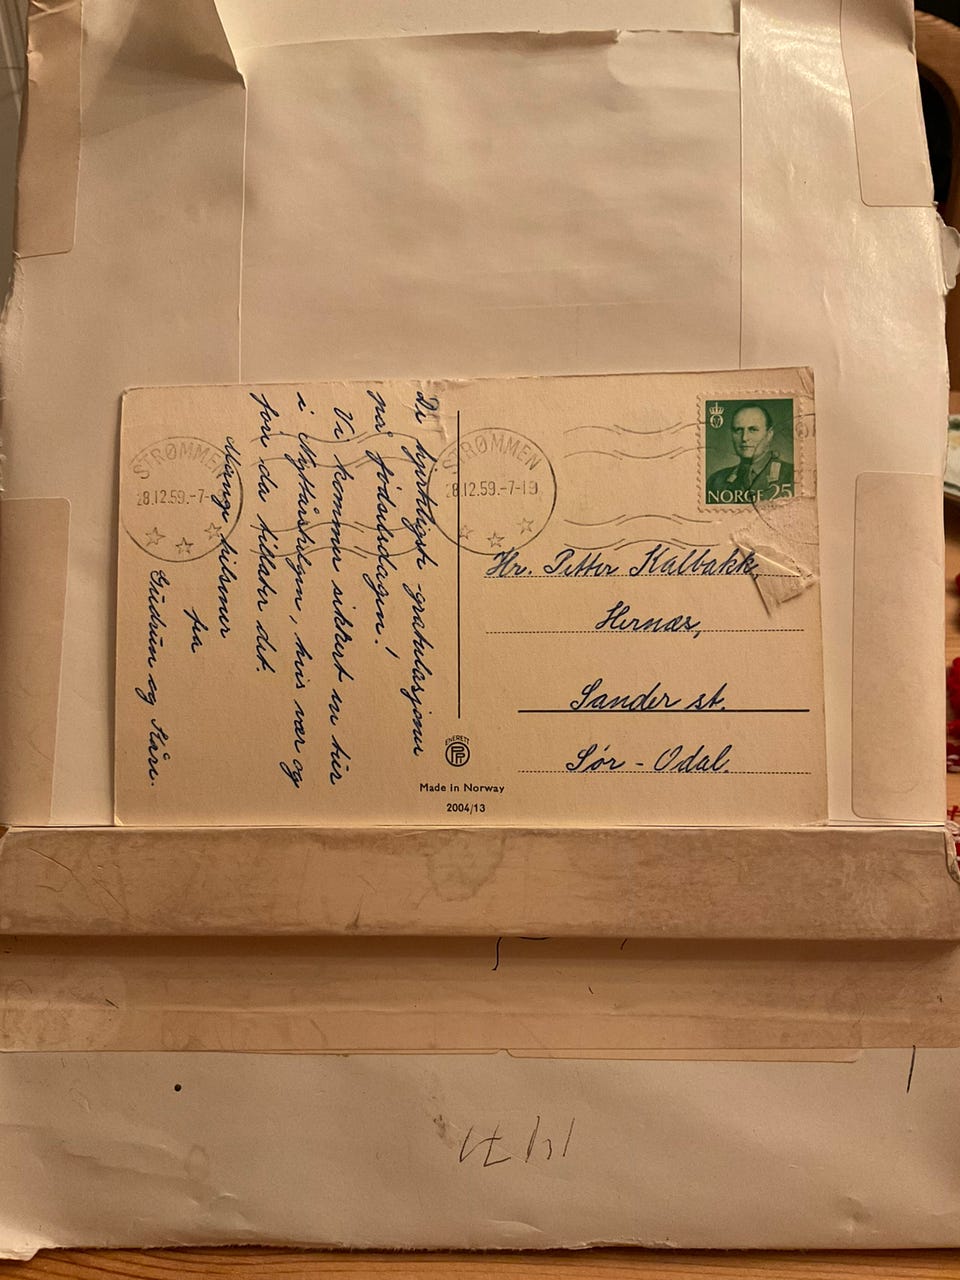 De hjerteligste gratulasjoner
på fødselsdagen!
Vi kommer sikkert en tur
i Nyttårshelgen, hvis vær og
føre da tillader det.
Mange hilsener
fra
Gudrun og Kåre.
STRØMMEN
28.12.59.-7-
STRØMMEN
28.12.59.-7-19
NORGE 25
Hr. Petter Kalbakk,
Hernæs,
Sander st.
Sør-Odal.
ENERETT
Made in Norway
2004/13